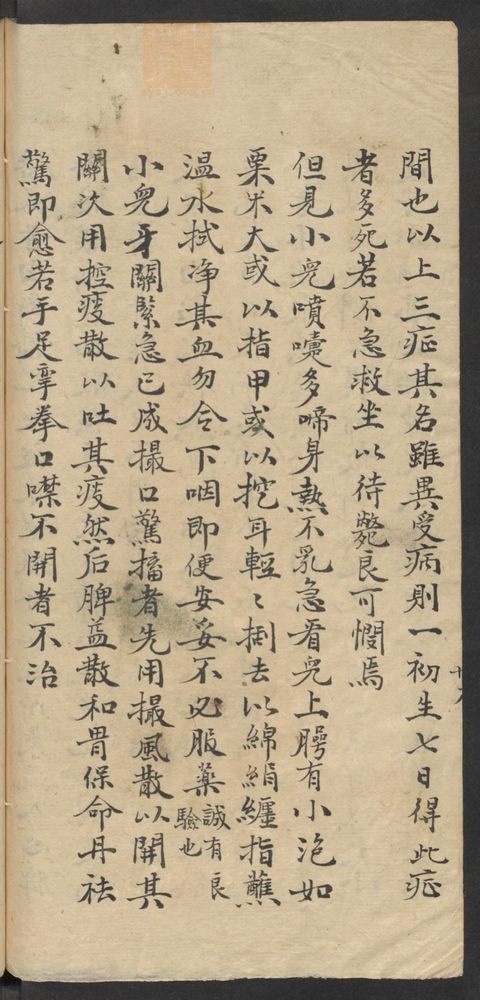 間也以上三症其名雖異受病則一初生七日得此症
者多死若不急救坐以待斃良可憫焉
但見小兒噴嚏多啼身熱不乳急看兒上腭有小泡如
栗米大或以指甲或以挖耳輕〻掛去以綿絹纏指蘸
温水拭净其血勿令下咽即便安妥不必服藥誠有良驗也
小兒牙關緊急已成撮口驚搐者先用撮風散以開其
關次用控痰散以吐其痰然后脾益散和胃保命丹祛
驚即愈若手足挛拳口噤不開者不治